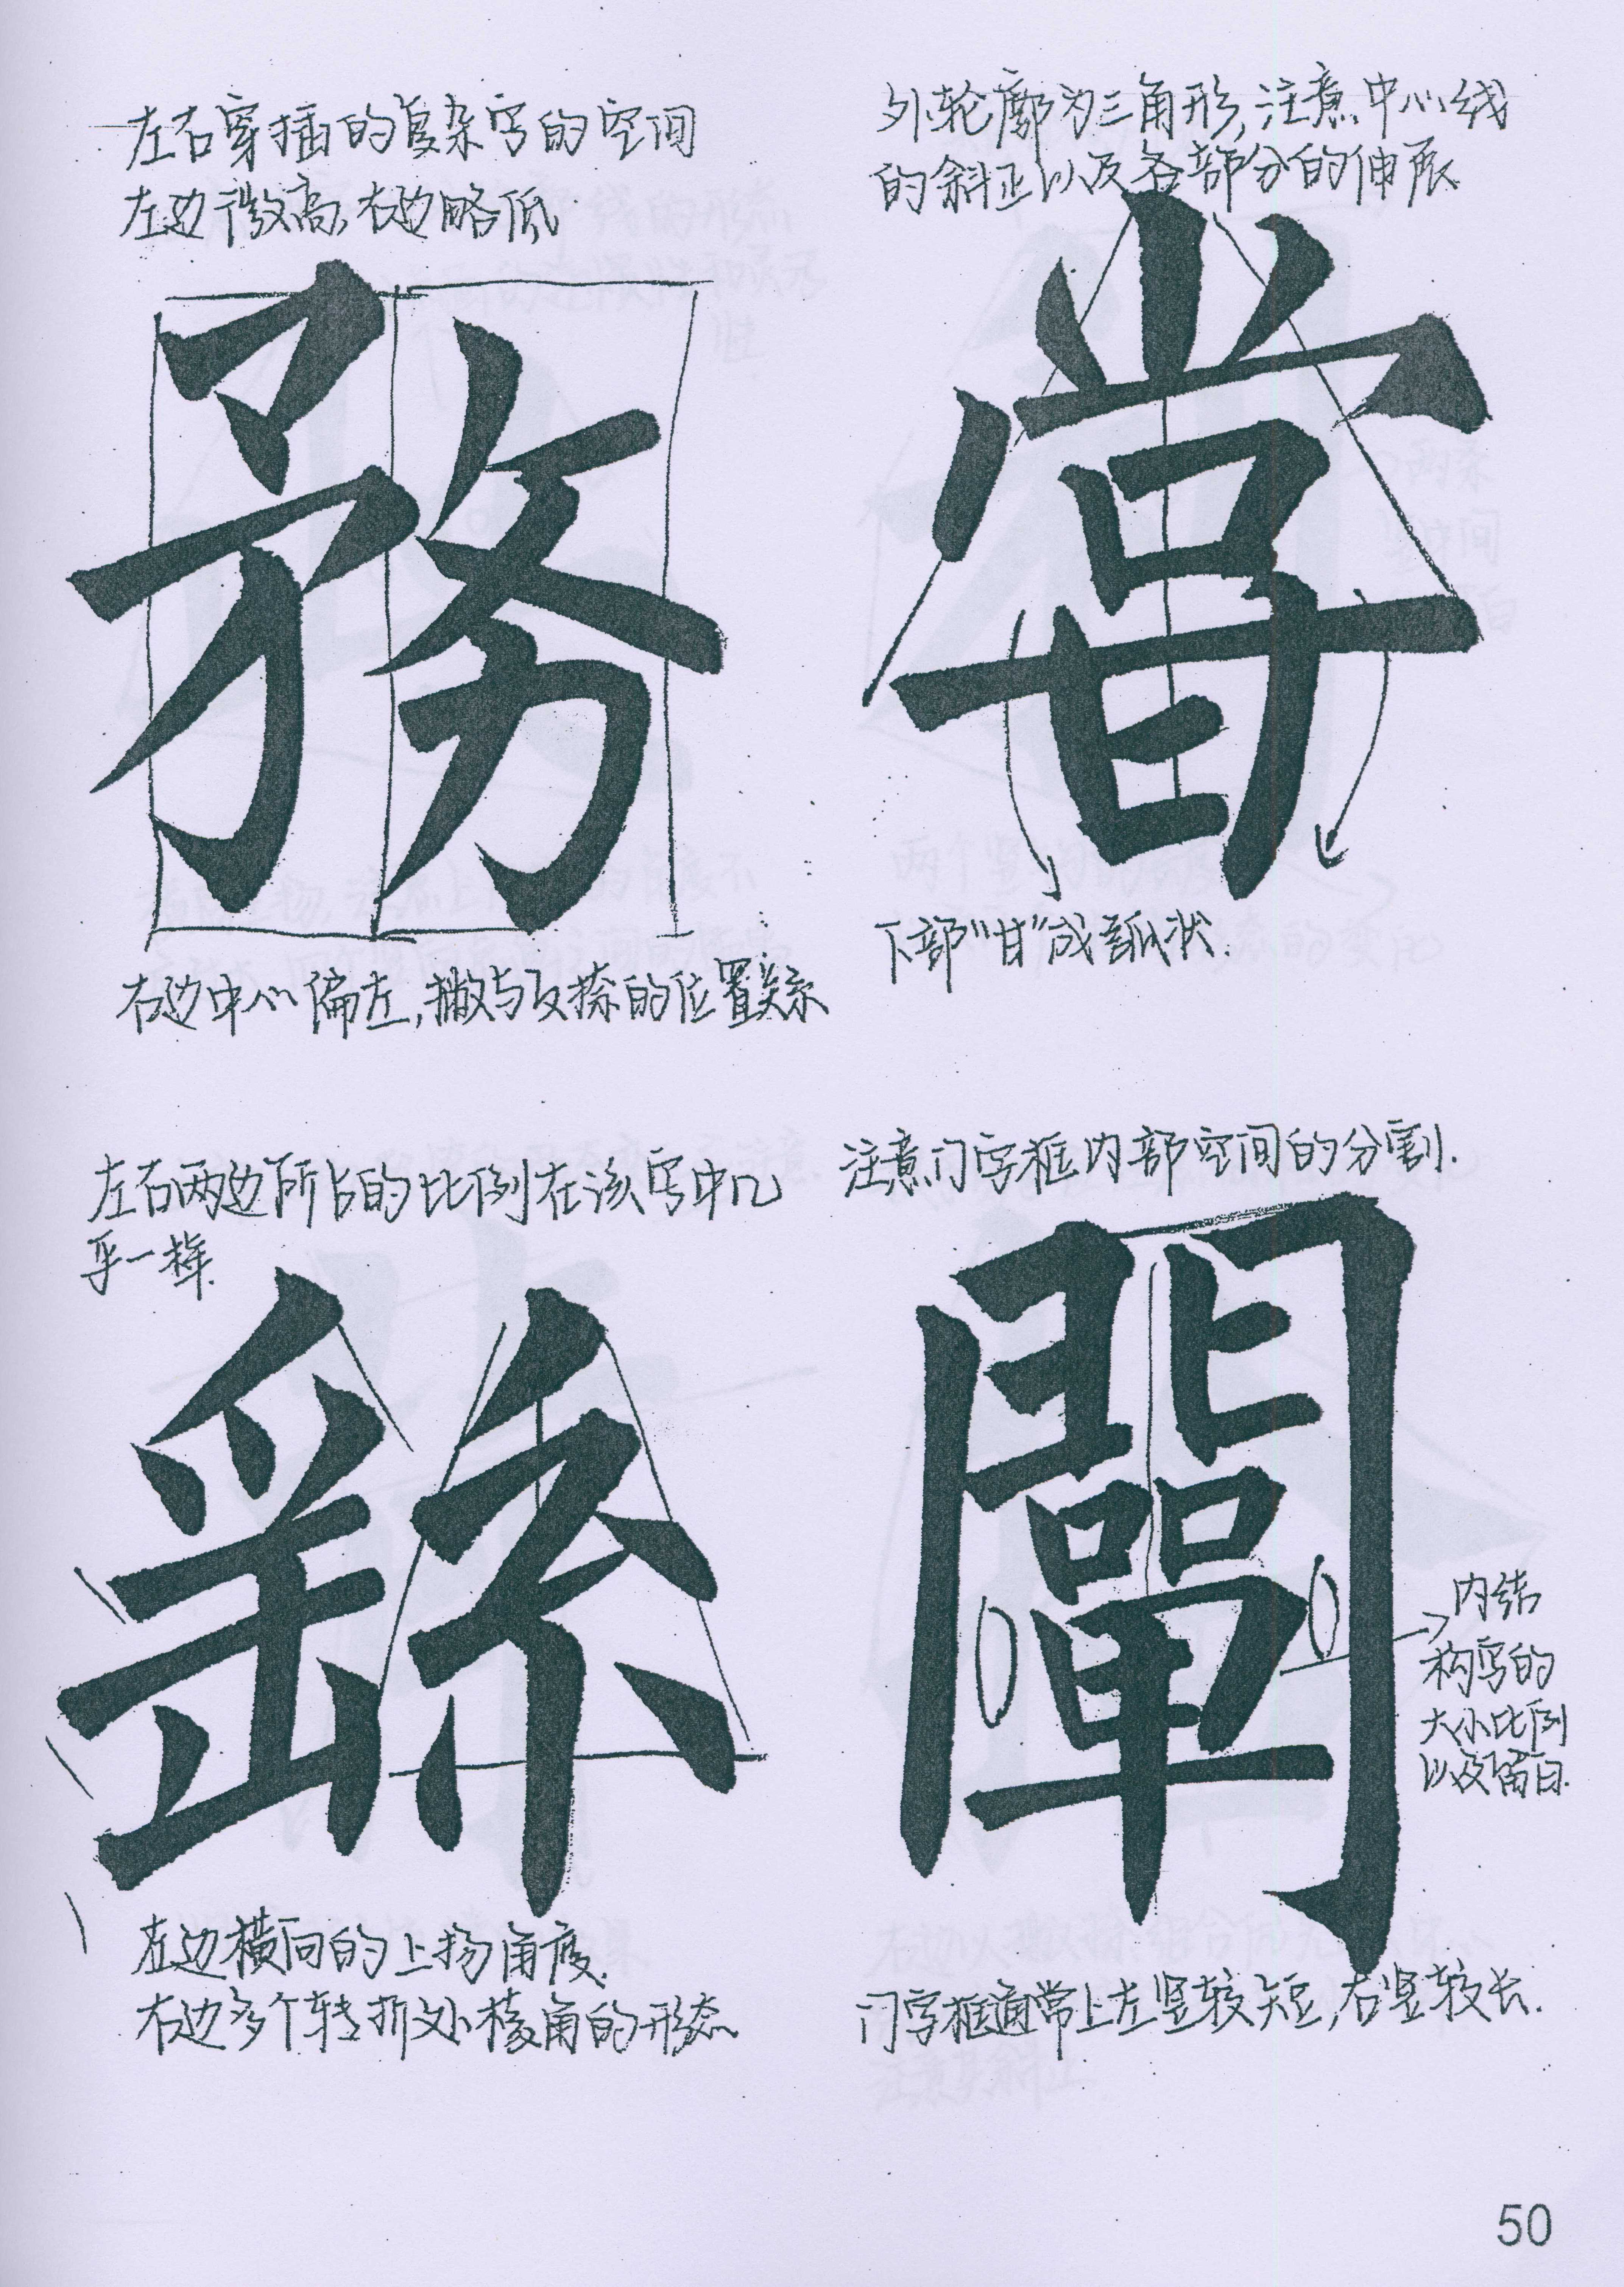 左右穿插的复杂字的空间
左边微高,右边略低.
務
右边中心偏左,撇与反捺的位置关系
外轮廓为三角形,注意中心线
的斜正以及各部分的伸展
甞
下部“甘”成弧状.
左右两边所占的比例在该字中几
乎一样.
䌛
左边横向的上扬角度.
右边多个转折处棱角的形态
注意门字框内部空间的分割.
闡
内结
构字的
大小比例
以及留白.
门字框通常上左竖较短,右竖较长.
50